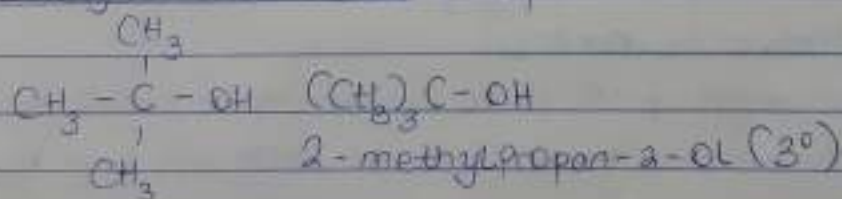 CH3
CH3 - C - OH (CH3)3 C - OH
CH3
2-methylpropan-2-OL (3°)